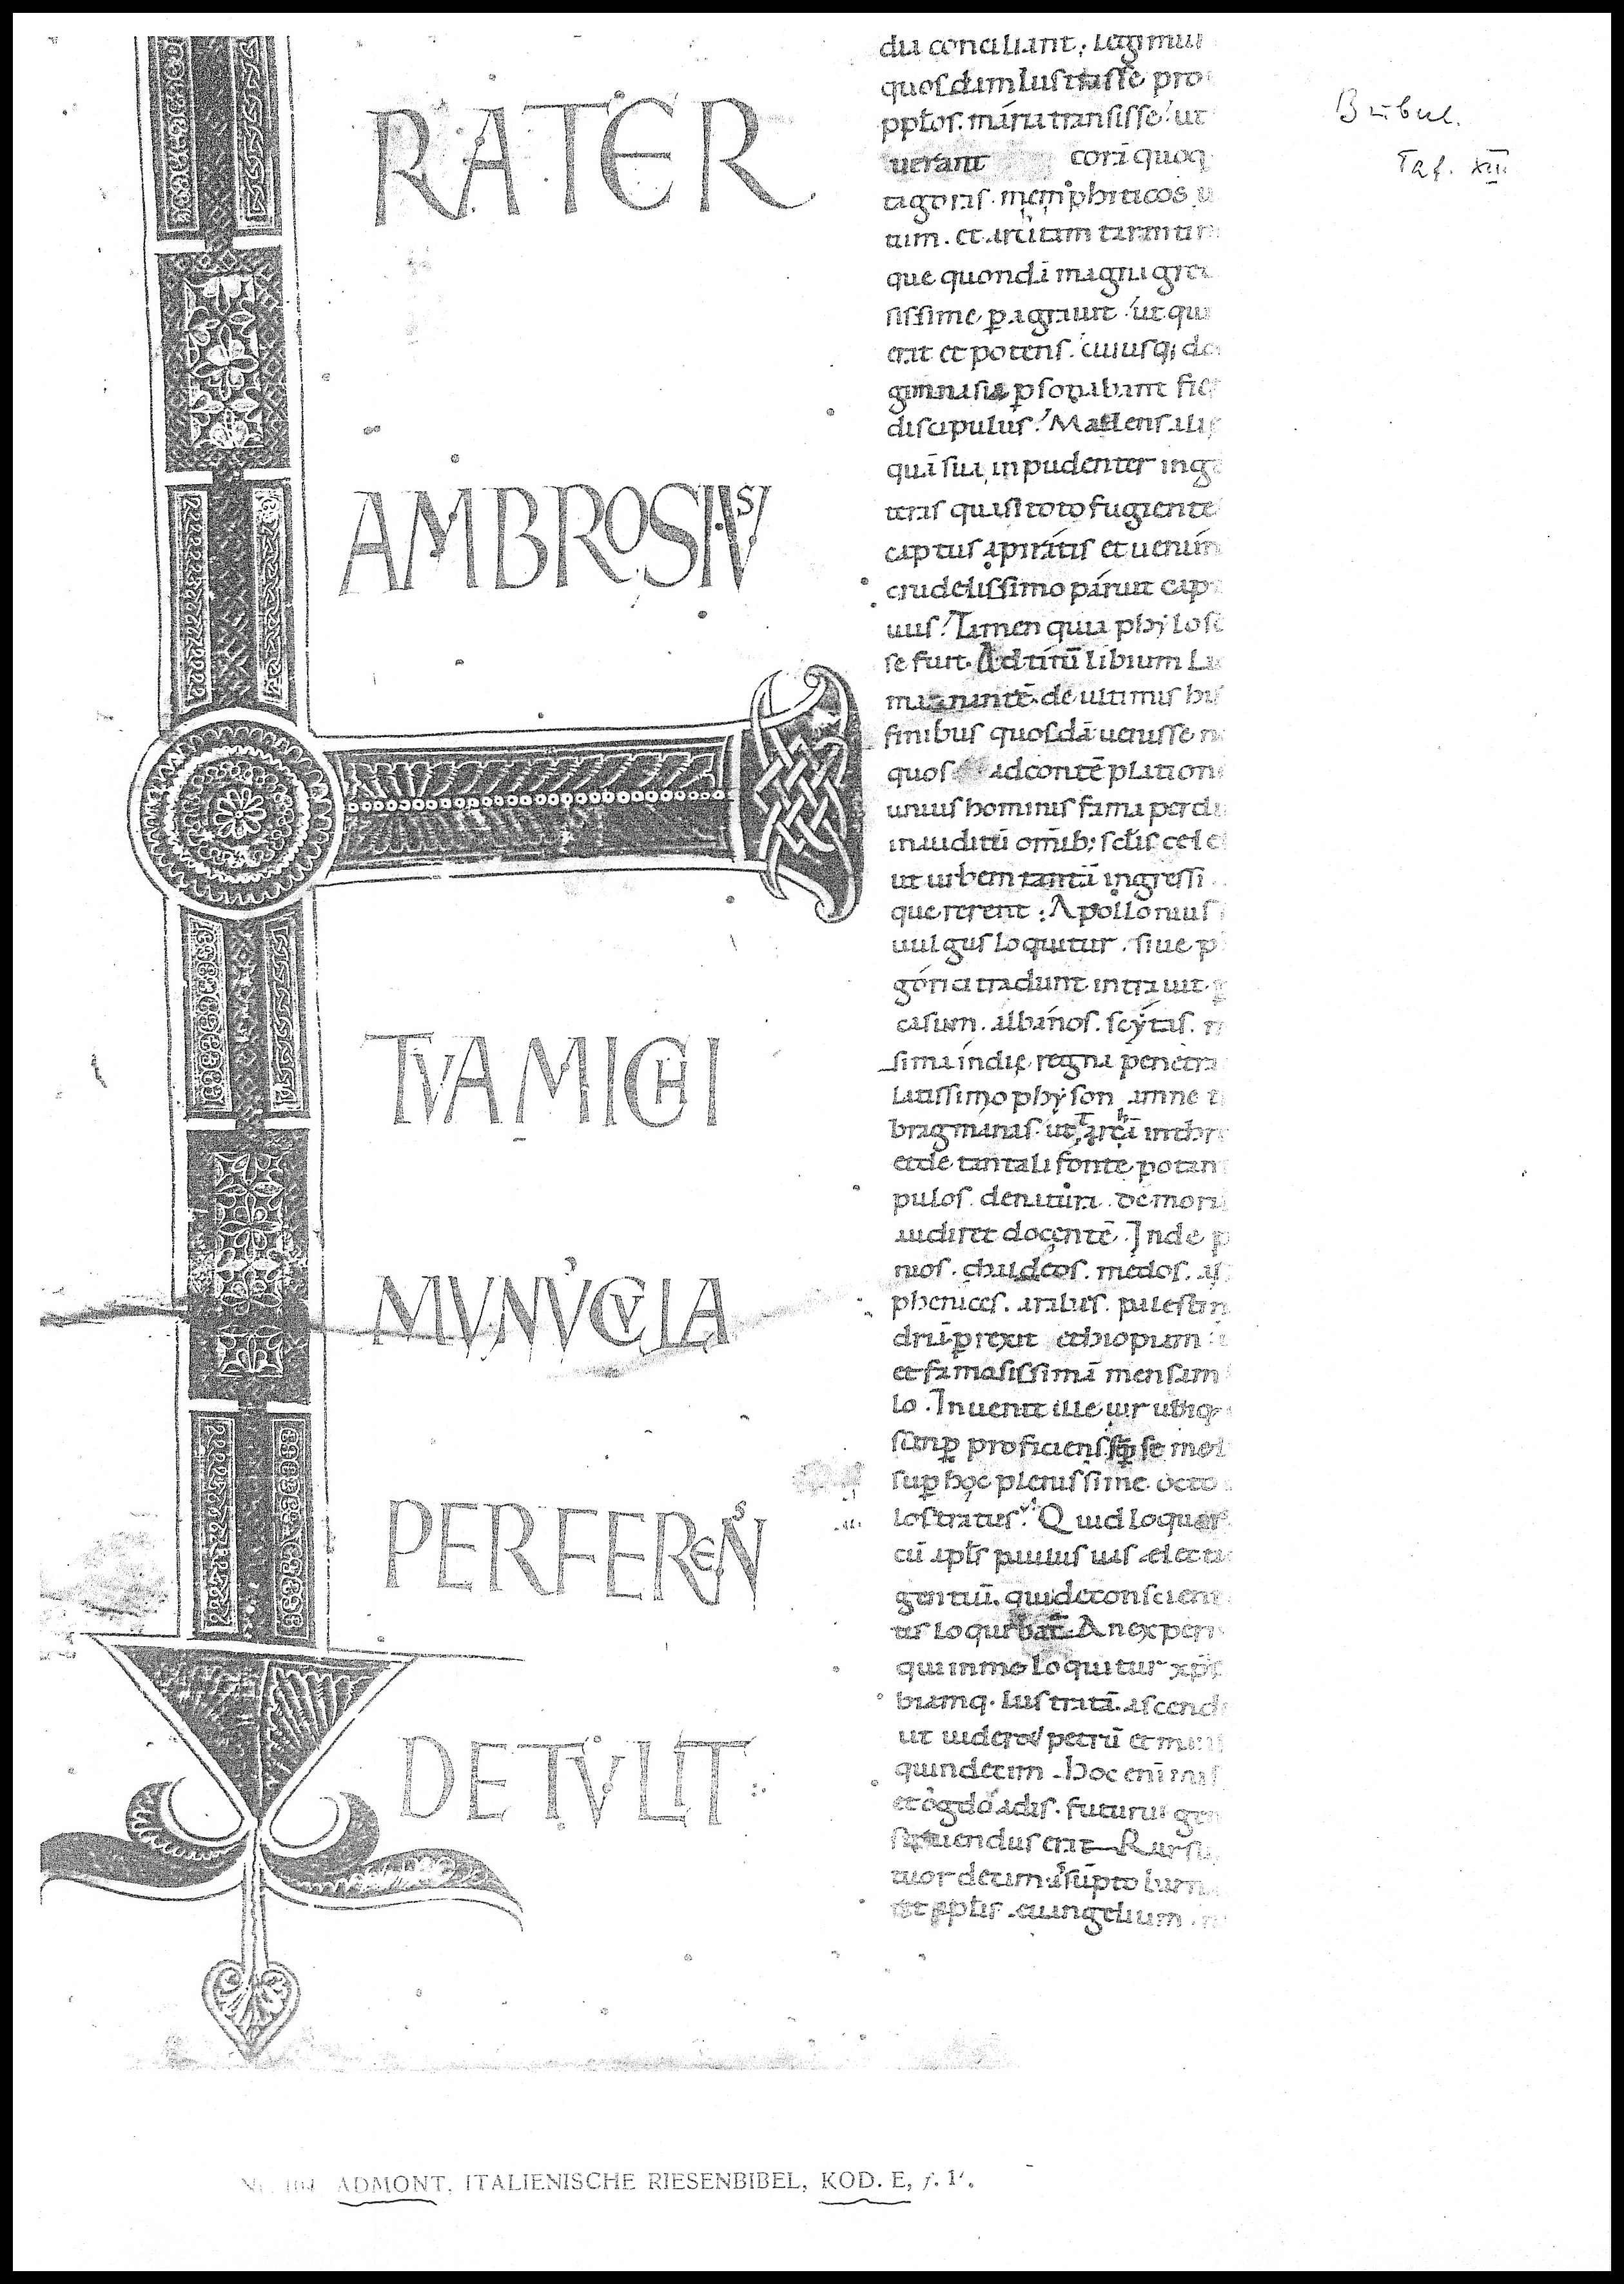 RATER
AMBROSIVS
TVA MICHI
MVNVCVLA
PERFERENS
DETVLIT
dia conciliant; Legimus
quosdam lustrasse pro
pplos. maria transisse ut
uerant corā quoq
tagoras. memphiticos u
tum. et arcitam tarentin
que quondā magna grec
sissime pagrauit ut qui
erat et potens. cuiusq; do
gimnasia psonabant fie
discipulus. Mallens alie
quā sua inpudenter ing
teras quasi toto fugiente
captus apiratis et uenun
crudelissimo paruit cap
uus. Tamen quia phylos
se fuit. Ad titū libium La
manantē de ultimis his
finibus quosdā uenisse n
quos ad contēplation
unius hominis fama perdu
inauditū omīb; sclis cele
ut urbem tantā ingressi
quererent: Apollonius
uulgus loquitur. siue p
gorici tradunt intrauit p
casum. albanos. scytas. m
sima indię regna penetra
latissimo physon amne t
bragmanas. ut
et de tantali fonte potan
pulos. de natura. de mori
audiret docentē. Inde p
nios. chaldeos. medos. as
phenices. arabes. palestin
driā prexit ethiopum
et famosissimā mensam
lo. Inuenit ille uir ubiq
semp proficiens semp se mel
sup hoc plenissime octo
lostratus. Quid loquar
cū apls paulus uas electi
gentiū. qui de conscient
tis loquebat. An experi
qui in me loquitur xps
biamq. lustratā. ascendi
ut uideret petrū et man
quindecim. Hoc enī mis
et ogdoadis. futurus gen
struendus erat Rursu
tuordecim assūpto barn
et aplis euangelium
Buberl.
Taf. XIII
ADMONT, ITALIENISCHE RIESENBIBEL, KOD. E, f. 1'.